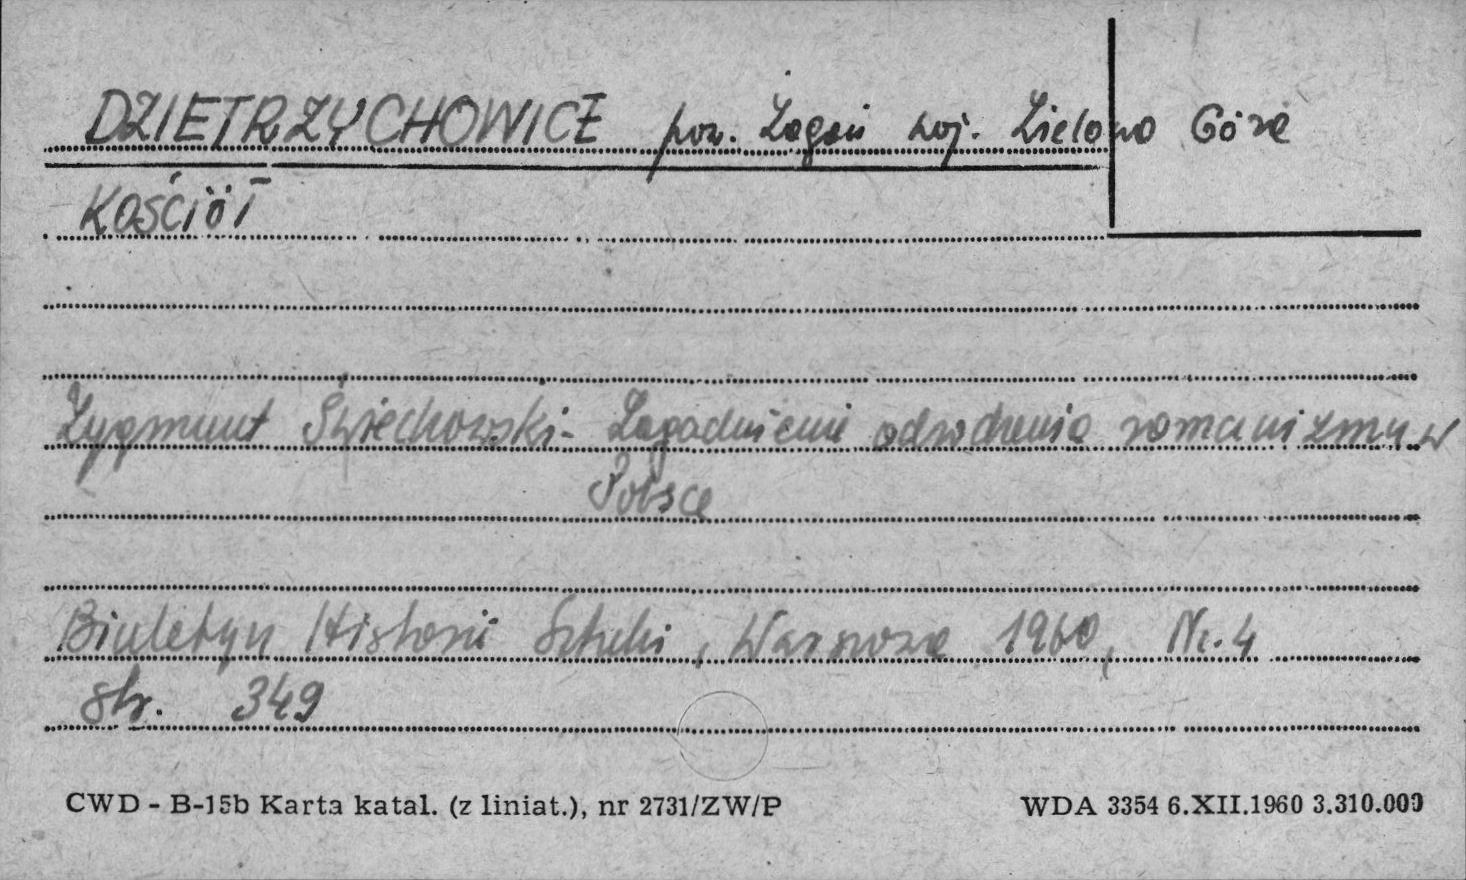 DZIETRZYCHOWICE pow. Żagań woj. Zielona Góra
KOŚCIÓŁ
Zygmunt Świechowski - Zagadnienie odrodzenia romanizmu w
Polsce
Biuletyn Historii Sztuki, Warszawa 1960, Nr. 4
str. 349
CWD - B-15b Karta katal. (z liniat.), nr 2731/ZW/P WDA 3354 6.XII.1960 3.310.000